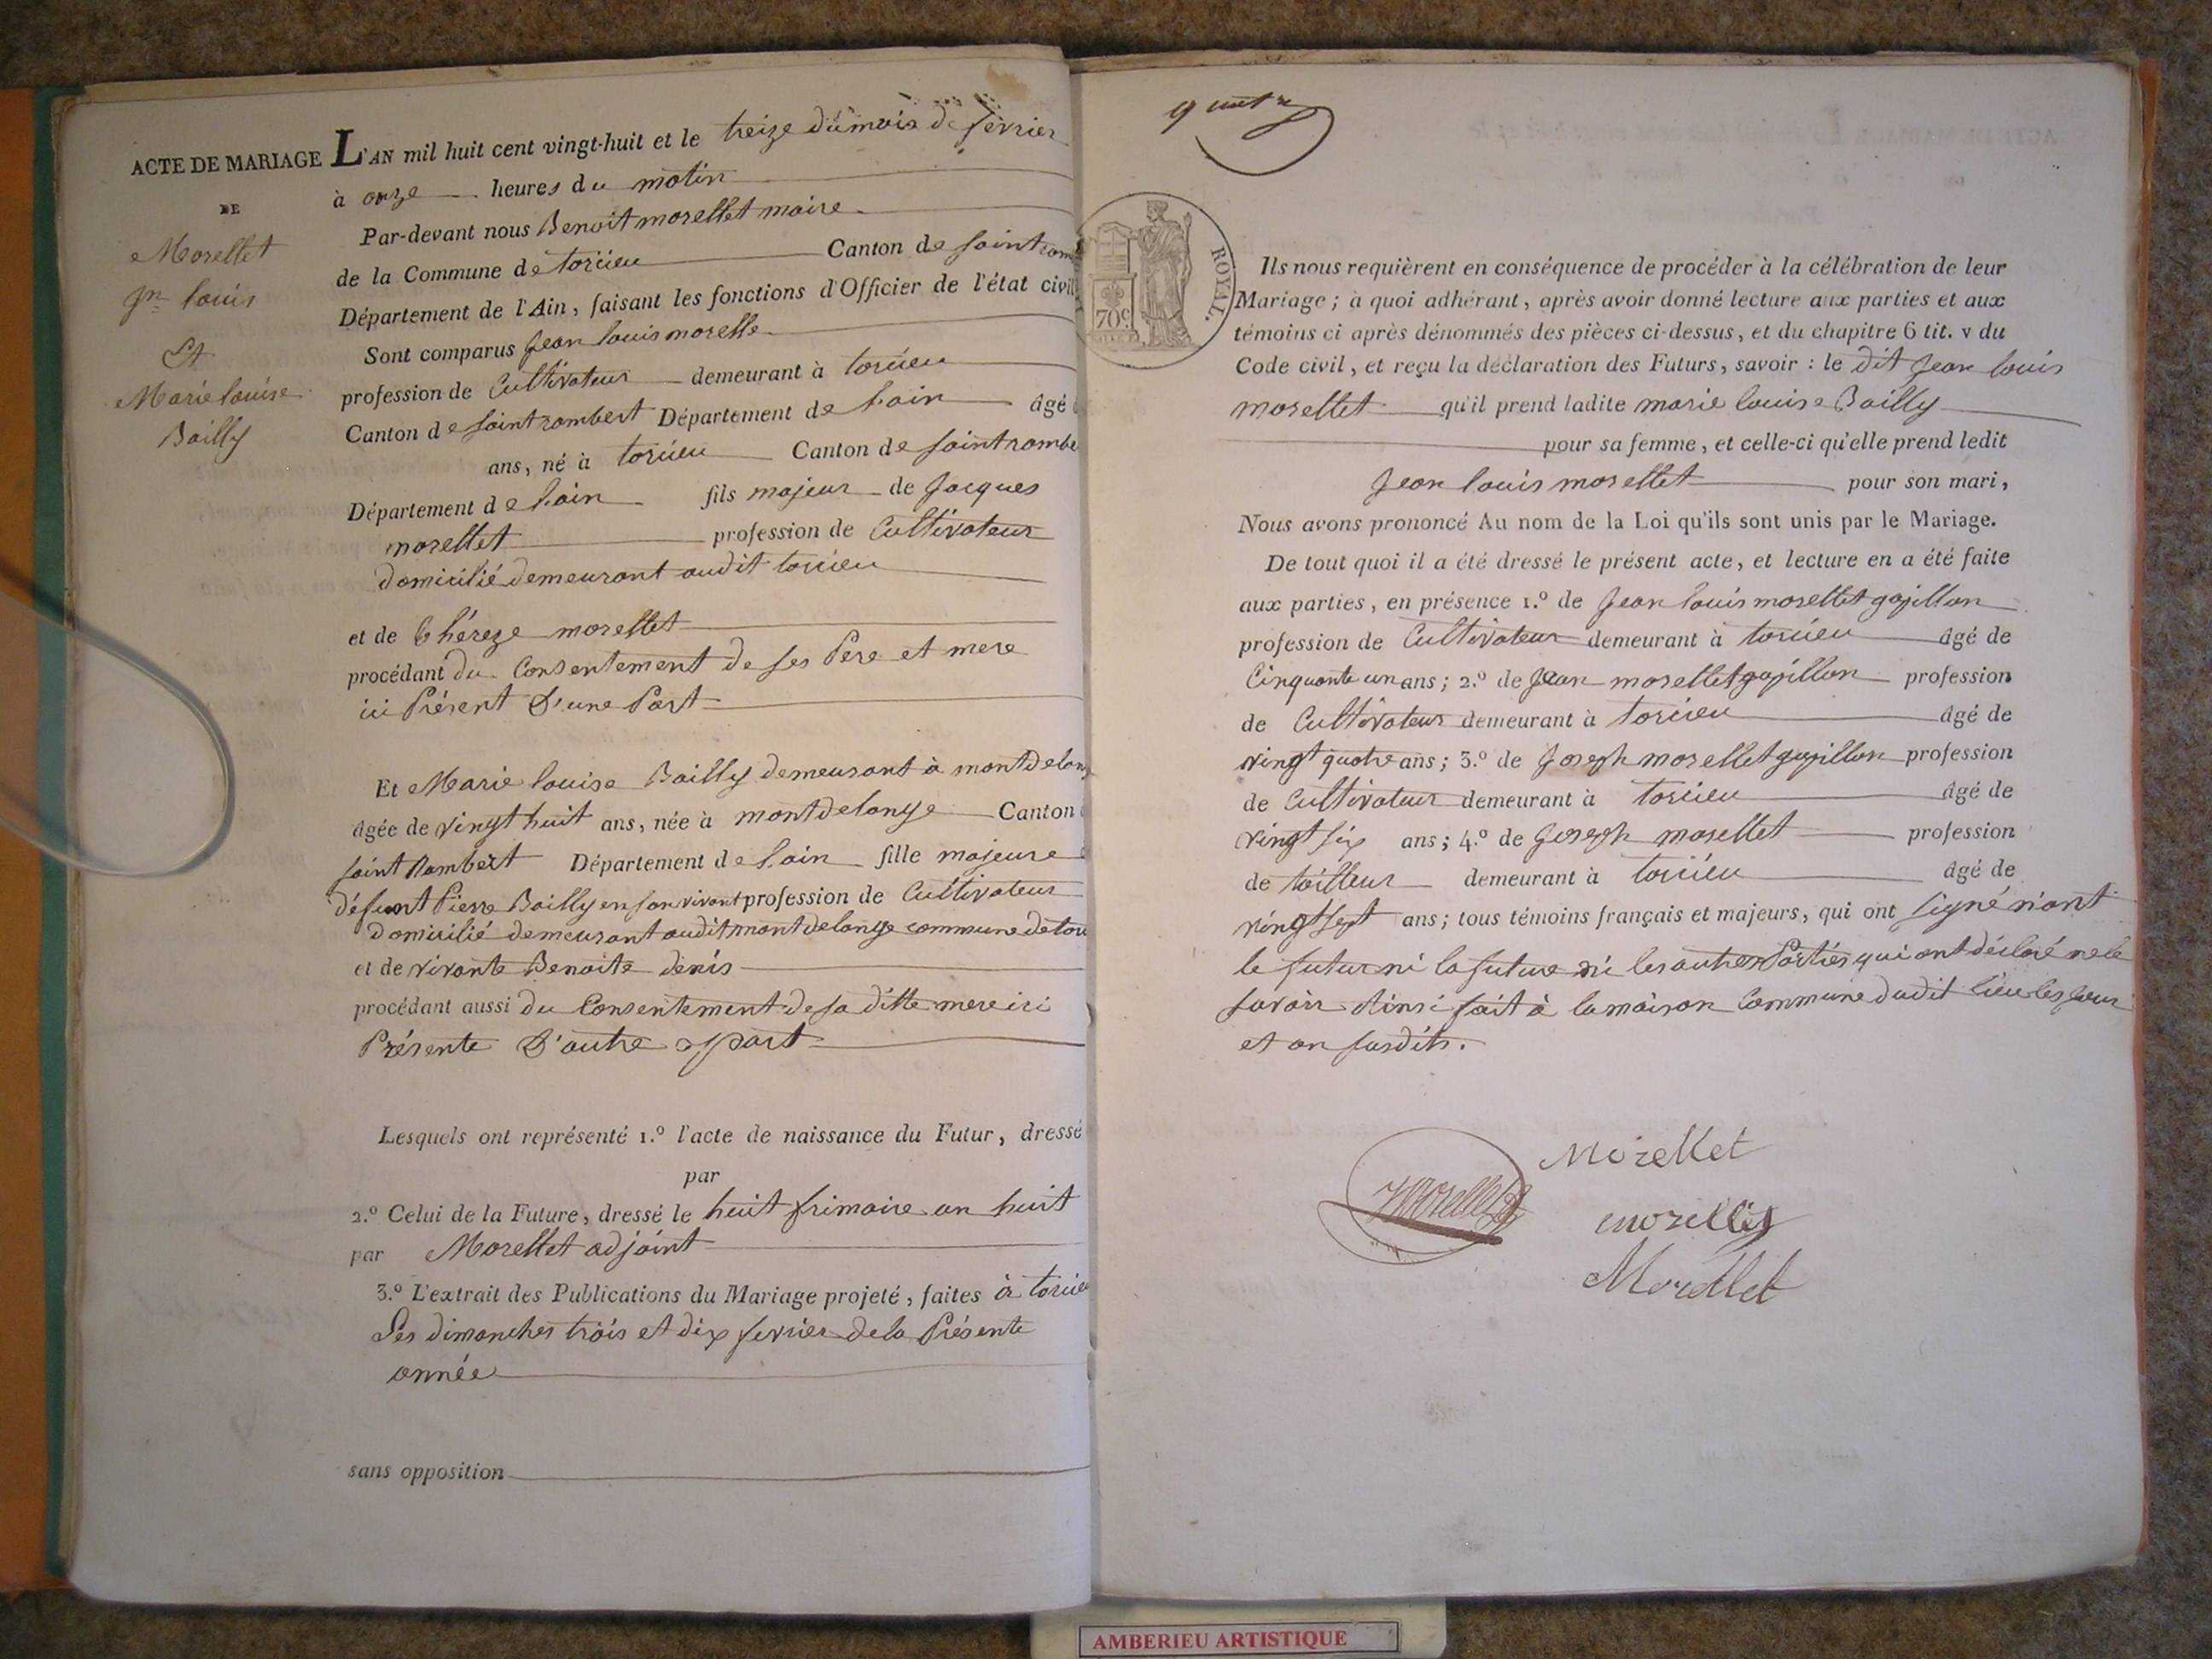 ACTE DE MARIAGE
DE
Morellet
Jn louis
Et
Marie louise
Bailly
L'AN mil huit cent vingt-huit et le treize du mois de fevrier
à onze heures du matin
Par-devant nous Benoit morellet maire
de la Commune de torcieu Canton de saint ramb
Département de l'Ain, faisant les fonctions d'Officier de l'état civil
Sont comparus jean louis morelle
profession de Cultivateur demeurant à torcieu
Canton de saint rambert Département de lain âgé
ans, né à torcieu Canton de saint rambe
Département de lain fils majeur de jacques
morellet profession de Cultivateur
domicilié demeurant audit torcieu
et de théreze morellet
procédant du Consentement de ses Pere et mere
ici Présent D'une Part
Et Marie louise Bailly demeurant à montdelong
âgée de vingt huit ans, née à montdelonge Canton
saint Rambert Département de lain fille majeure
défunt Pierre Bailly en son vivant profession de Cultivateur
domicilié demeurant audit montdelonge commune de torc
et de vivante Benoite denis
procédant aussi du Consentement de sa ditte mere ici
Présente D'autre part
Lesquels ont représenté 1.º l'acte de naissance du Futur, dressé
par
2.º Celui de la Future, dressé le huit frimaire an huit
par Morellet adjoint
3.º L'extrait des Publications du Mariage projeté, faites à torcieu
Les dimanches trois et dix fevrier de la Présente
année
sans opposition
ROYAL.
70c
Ils nous requièrent en conséquence de procéder à la célébration de leur
Mariage; à quoi adhérant, après avoir donné lecture aux parties et aux
témoins ci après dénommés des pièces ci-dessus, et du chapitre 6 tit. v du
Code civil, et reçu la déclaration des Futurs, savoir : le dit jean louis
morellet qu'il prend ladite marie louise Bailly
pour sa femme, et celle-ci qu'elle prend ledit
jean louis morellet pour son mari,
Nous avons prononcé Au nom de la Loi qu'ils sont unis par le Mariage.
De tout quoi il a été dressé le présent acte, et lecture en a été faite
aux parties, en présence 1.º de jean louis morellet
profession de Cultivateur demeurant à torcieu âgé de
Cinquante un ans; 2.º de jean morellet profession
de Cultivateur demeurant à torcieu âgé de
vingt quatre ans; 3.º de joseph morellet profession
de Cultivateur demeurant à torcieu âgé de
vingt six ans; 4.º de joseph morellet profession
de tailleur demeurant à torcieu âgé de
vingt sept ans; tous témoins français et majeurs, qui ont signé n'ont
le futur ni la future ni les autres Parties qui ont déclaré ne le
savoir Ainsi fait à la maison Commune dudit lieu les jour
et an susdits.
Morellet
Morellet
morellet
Morellet
AMBERIEU ARTISTIQUE